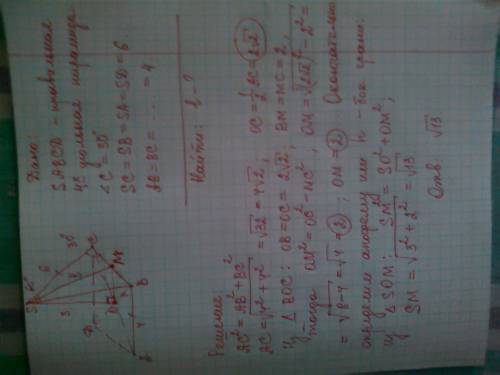 Дано:
SABCD - правильная
4х угольная пирамида
∠C = 30°
SC = SB = SA = SD = 6
AB = BC = ... = 4
Найти: h - ?
Решение:
AC² = AB² + BC²
AC = √4² + 4² = √32 = 4√2, OC = ½ AC = 2√2
Из △ BOC: OB = OC = 2√2, BM = MC = 2,
тогда OM² = OC² - MC², OM = √(2√2)² - 2² =
= √8-4 = √4 = 2; OM = 2 Окончательно
определим апофему или h - бок. грани.
из △ SOM: SM² = SO² + OM²;
SM = √3² + 2² = √13
Отв. √13
S
6
6
30°
C
3
M
D
O
B
4